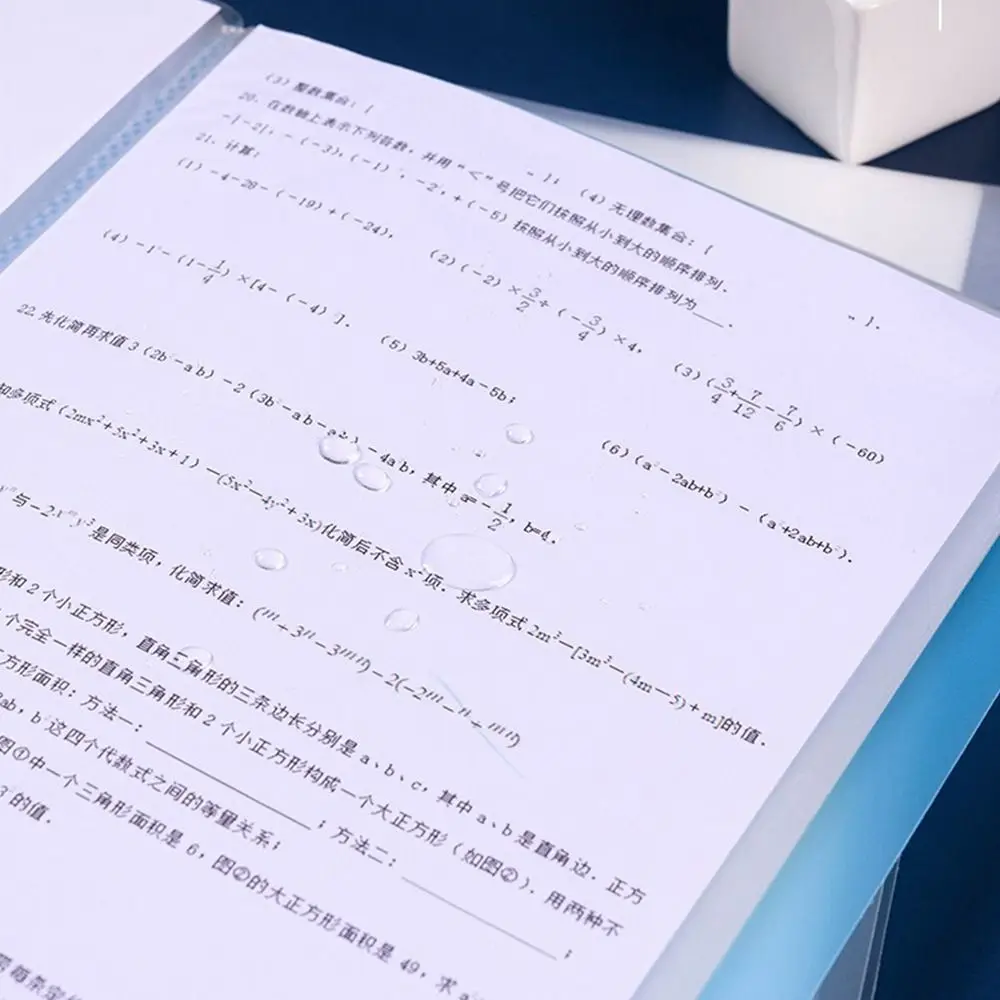 (3) 整数集合:{ …};(4) 无理数集合:{ …}.
20. 在数轴上表示下列各数,并用“<”号把它们按照从小到大的顺序排列.
-|-2|,-(-3),(-1) ,-2,+(-5) 按照从小到大的顺序排列为___.
21. 计算:
(1) -4-28-(-19)+(-24), (2) (-2)×3/2+(-3/4)×4, (3) (3/4+7/12-7/6)×(-60)
(4) -1 -(1-1/4)×[4-(-4) ]. (5) 3b+5a+4a-5b; (6) (a²-2ab+b²)-(a +2ab+b²).
22. 先化简再求值 3(2b²-a b)-2(3b²-ab-a²b)-4a b,其中 a=-1/2,b=4.
知多项式(2mx²+5x²+3x+1)-(5x²-4y²+3x)化简后不含 x²项. 求多项式 2m³-[3m³-(4m-5)+m]的值.
与-2x y³是同类项,化简求值:
形和 2 个小正方形,直角三角形的三条边长分别是 a、b、c,其中 a、b 是直角边. 正方
个完全一样的直角三角形和 2 个小正方形构成一个大正方形(如图②). 用两种不
方形面积:方法一:___________;方法二:___________;
ab,b²这四个代数式之间的等量关系;
图①中一个三角形面积是 6,图②的大正方形面积是 49,求 a
3 的值.